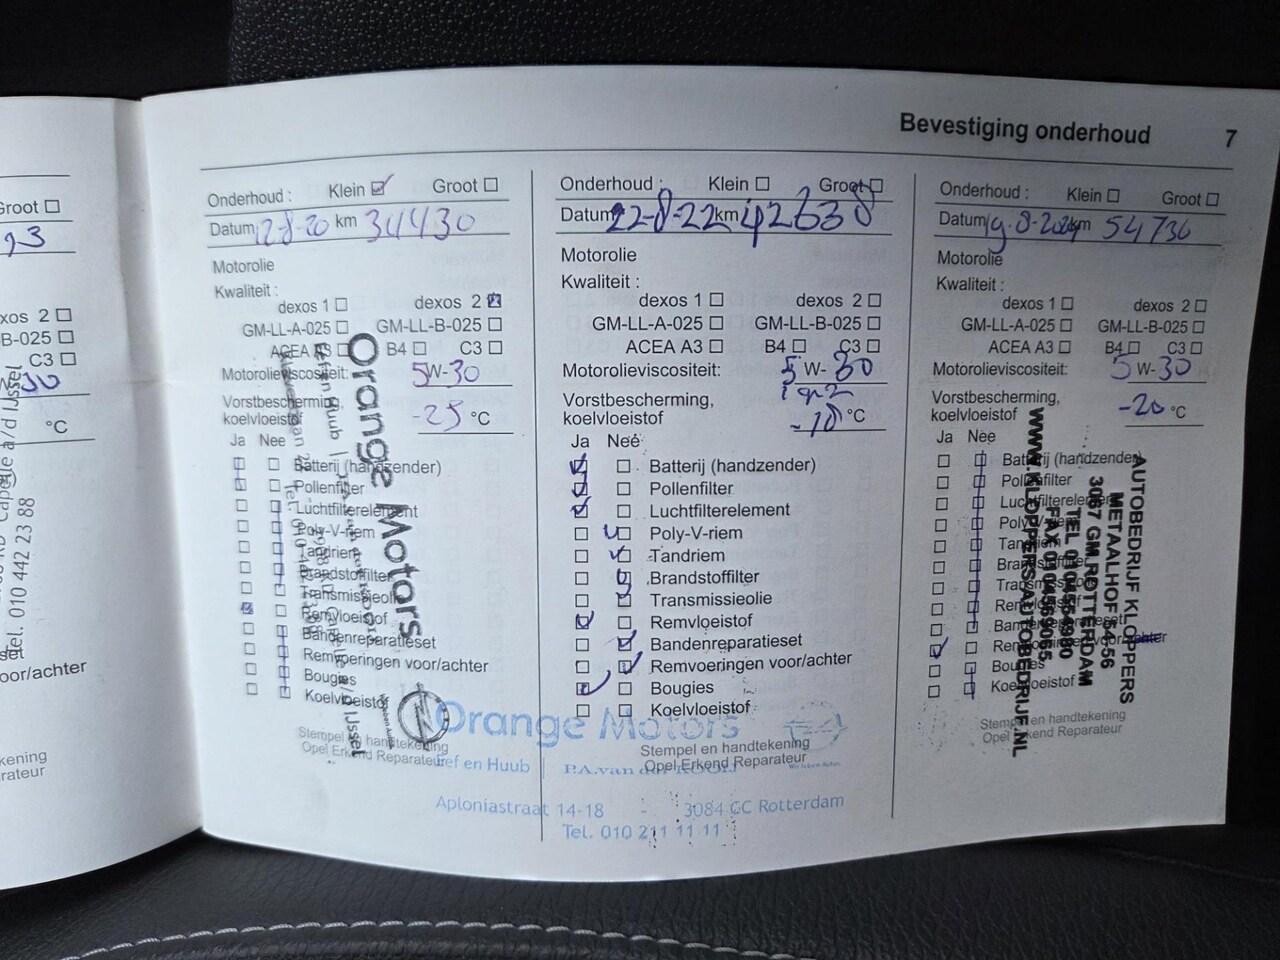 Bevestiging onderhoud 7
Groot
93
dexos 2
C3
30
°C
Capelle a/d IJssel
Tel. 010 442 23 88
voor/achter
Onderhoud : Klein Groot
Datum 12-8-20 km 34430
Motorolie
Kwaliteit :
dexos 1 dexos 2
GM-LL-A-025 GM-LL-B-025
ACEA A3 B4 C3
Motorolieviscositeit: 5W-30
Vorstbescherming,
koelvloeistof -25 °C
Ja Nee
Batterij (handzender)
Pollenfilter
Luchtfilterelement
Poly-V-riem
Tandriem
Brandstoffilter
Transmissieolie
Remvloeistof
Bandenreparatieset
Remvoeringen voor/achter
Bougies
Koelvloeistof
Stempel en handtekening
Opel Erkend Reparateur
Orange Motors
Onderhoud : Klein Groot
Datum 22-8-22 km 42638
Motorolie
Kwaliteit :
dexos 1 dexos 2
GM-LL-A-025 GM-LL-B-025
ACEA A3 B4 C3
Motorolieviscositeit: 5W-30
Vorstbescherming,
koelvloeistof -18 °C
Ja Nee
Batterij (handzender)
Pollenfilter
Luchtfilterelement
Poly-V-riem
Tandriem
Brandstoffilter
Transmissieolie
Remvloeistof
Bandenreparatieset
Remvoeringen voor/achter
Bougies
Koelvloeistof
Stempel en handtekening
Opel Erkend Reparateur
Orange Motors
en Huub | P.A. van der
Aploniastraat 14-18 - 3084 CC Rotterdam
Tel. 010 211 11 11
Onderhoud : Klein Groot
Datum 19-8-2024 km 54736
Motorolie
Kwaliteit :
dexos 1 dexos 2
GM-LL-A-025 GM-LL-B-025
ACEA A3 B4 C3
Motorolieviscositeit: 5W-30
Vorstbescherming,
koelvloeistof -20 °C
Ja Nee
Batterij (handzender)
Pollenfilter
Luchtfilterelement
Poly-V-riem
Tandriem
Brandstoffilter
Transmissieolie
Remvloeistof
Bandenreparatieset
Remvoeringen voor/achter
Bougies
Koelvloeistof
Stempel en handtekening
Opel Erkend Reparateur
AUTOBEDRIJF KLOPPERS
METAALHOF 54-56
3067 GM ROTTERDAM
TEL 010 4564980
FAX 010 4569065
WWW.KLOPPERSAUTOBEDRIJF.NL